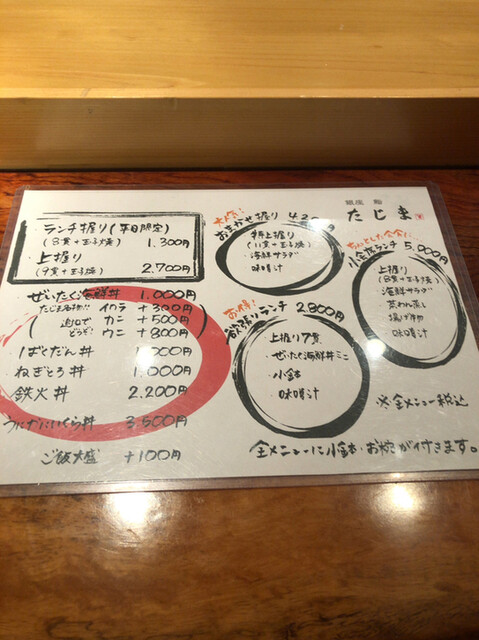 ランチ握り(平日限定)
(8貫+玉子焼) 1.300円
上握り
(9貫+玉子焼) 2.700円
ぜいたく海鮮丼 1.000円
たじま名物!! イクラ +300円
追加で カニ +500円
どうぞ! ウニ +800円
ばくだん丼 000円
ねぎとろ丼 1.000円
鉄火丼 2.200円
うにかにいくら丼 3.500円
ご飯大盛 +100円
大人気!
おまかせ握り
特上握り
(11貫+玉子焼)
海鮮サラダ
味噌汁
お得!
欲張りランチ 2.800円
上握り7貫
ぜいたく海鮮丼ミニ
小鉢
味噌汁
銀座 鮨
たじま
ちょっとした会食に!
小会席ランチ 5.000円
上握り
(8貫+玉子焼)
海鮮サラダ
茶わん蒸し
揚げ物
味噌汁
※全メニュー税込
全メニューに小鉢・お椀が付きます。